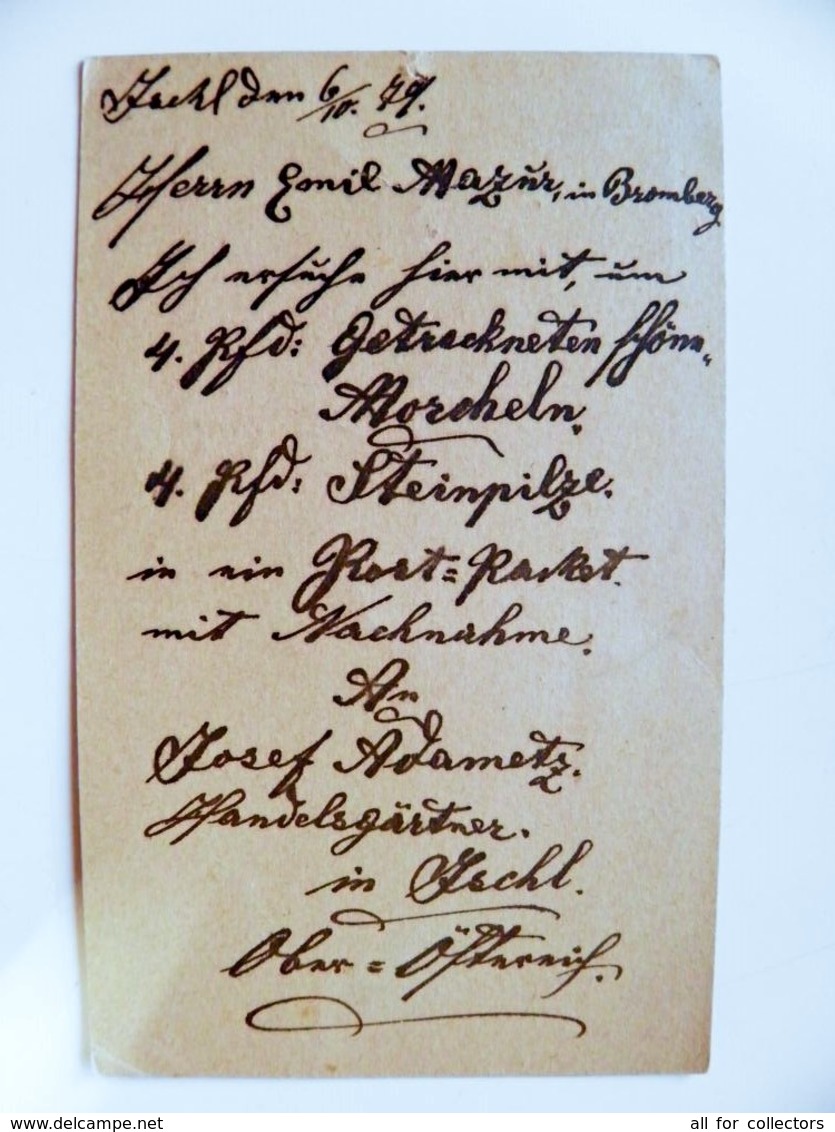 Ischl den 6/10. 79.
Herrn Emil Mazur, in Bromberg
Ich ersuche hier mit, um
4. Pfd: Getrockneten schönn„
Morcheln„
4. Pfd: Steinpilze.
in ein Post=Packet.
mit Nachnahme.
An
Josef Adametz.
Handelsgärtner.
in Ischl.
Ober=Östereich.
www.delcampe.net
all for collectors